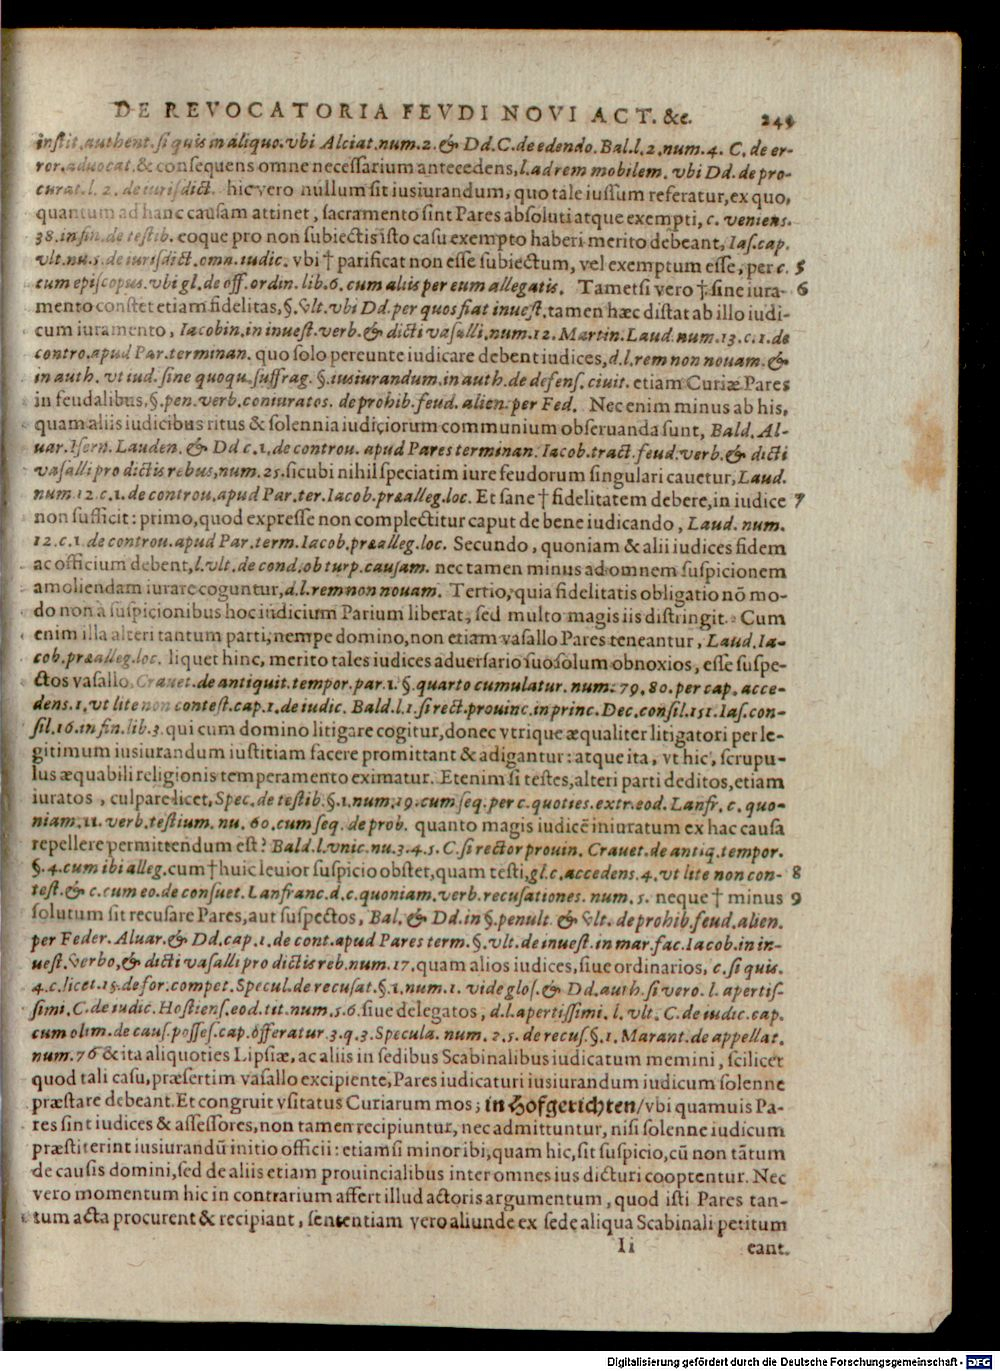 DE REVOCATORIA FEVDI NOVI ACT. &c. 249
instit. authent. si quis in aliquo. vbi Alciat. num. 2. & Dd. C. de edendo. Bal. l. 2. num. 4. C. de er-
ror. aduocat. & consequens omne necessarium antecedens, l. ad rem mobilem. vbi Dd. de pro-
curat. l. 2. de iurisdict. hic vero nullum sit iusiurandum, quo tale iussum referatur, ex quo,
quantum ad hanc causam attinet, sacramento sint Pares absoluti atque exempti, c. veniens.
38. in fin. de testib. eoque pro non subiectis isto casu exempto haberi merito debeant, Ias. cap.
vlt. nu. 5. de iurisdict. omn. iudic. vbi † parificat non esse subiectum, vel exemptum esse, per c. 5
cum episcopus. vbi gl. de off. ordin. lib. 6. cum aliis per eum allegatis. Tametsi vero † sine iura- 6
mento constet etiam fidelitas, §. vlt. vbi Dd. per quos fiat inuest. tamen hæc distat ab illo iudi-
cum iuramento, Iacobin. in inuest. verb. & dicti vasalli, num. 12. Martin. Laud. num. 13. c. 1. de
contro. apud Par. terminan. quo solo pereunte iudicare debent iudices, d. l. rem non nouam. &
in auth. vt iud. sine quoqu. suffrag. §. iusiurandum. in auth. de defens. ciuit. etiam Curiæ Pares
in feudalibus, §. pen. verb. coniuratos. de prohib. feud. alien. per Fed. Nec enim minus ab his,
quam aliis iudicibus ritus & solennia iudiciorum communium obseruanda sunt, Bald. Al-
uar. Isern. Lauden. & Dd c. 1. de controu. apud Pares terminan. Iacob. tract. feud. verb. & dicti
vasalli pro dictis rebus, num. 25. sicubi nihil speciatim iure feudorum singulari cauetur, Laud.
num. 12. c. 1. de controu. apud Par. ter. Iacob. præalleg. loc. Et sane † fidelitatem debere, in iudice 7
non sufficit: primo, quod expresse non complectitur caput de bene iudicando, Laud. num.
12. c. 1. de controu. apud Par. term. Iacob. præalleg. loc. Secundo, quoniam & alii iudices fidem
ac officium debent, l. vlt. de cond. ob turp. causam. nec tamen minus ad omnem suspicionem
amoliendam iurare coguntur, d. l. rem non nouam. Tertio, quia fidelitatis obligatio nō mo-
do non à suspicionibus hoc iudicium Parium liberat, sed multo magis iis distringit. Cum
enim illa alteri tantum parti, nempe domino, non etiam vasallo Pares teneantur, Laud. Ia-
cob. præalleg. loc. liquet hinc, merito tales iudices aduersario suo solum obnoxios, esse suspe-
ctos vasallo. Crauet. de antiquit. tempor. par. 1. §. quarto cumulatur. num. 79. 80. per cap. acce-
dens. 1. vt lite non contest. cap. 1. de iudic. Bald. l. 1. si rect. prouinc. in princ. Dec. consil. 151. Ias. con-
sil. 16. in fin. lib. 3. qui cum domino litigare cogitur, donec vtrique æqualiter litigatori per le-
gitimum iusiurandum iustitiam facere promittant & adigantur: atque ita, vt hic, scrupu-
lus æquabili religionis temperamento eximatur. Etenim si testes, alteri parti deditos, etiam
iuratos, culpare licet, Spec. de testib. §. 1. num. 19. cum seq. per c. quoties. extr. eod. Lanfr. c. quo-
niam. 11. verb. testium. nu. 60. cum seq. de prob. quanto magis iudicē iniuratum ex hac causa
repellere permittendum est? Bald. l. vnic. nu. 3. 4. 5. C. si rector prouin. Crauet. de antiq. tempor.
§. 4. cum ibi alleg. cum † huic leuior suspicio obstet, quam testi, gl. c. accedens. 4. vt lite non con- 8
test. & c. cum eo. de consuet. Lanfranc. d. c. quoniam. verb. recusationes. num. 5. neque † minus 9
solutum sit recusare Pares, aut suspectos, Bal. & Dd. in §. penult. & vlt. de prohib. feud. alien.
per Feder. Aluar. & Dd. cap. 1. de cont. apud Pares term. §. vlt. de inuest. in mar. fac. Iacob. in in-
uest. verbo, & dicti vasalli pro dictis reb. num. 17. quam alios iudices, siue ordinarios, c. si quis.
4. c. licet. 15. de for. compet. Specul. de recusat. §. 1. num. 1. vide glos. & Dd. auth. si vero. l. apertis-
simi. C. de iudic. Hostiens. eod. tit. num. 5. 6. siue delegatos, d. l. apertissimi. l. vlt. C. de iudic. cap.
cum olim. de caus. posses. cap. offeratur. 3. q. 3. Specula. num. 2. 5. de recus. §. 1. Marant. de appellat.
num. 76 & ita aliquoties Lipsiæ, ac aliis in sedibus Scabinalibus iudicatum memini, scilicet
quod tali casu, præsertim vasallo excipiente, Pares iudicaturi iusiurandum iudicum solenne
præstare debeant. Et congruit vsitatus Curiarum mos; in Hofgerichten/ vbi quamuis Pa-
res sint iudices & assessores, non tamen recipiuntur, nec admittuntur, nisi solenne iudicum
præstiterint iusiurandū initio officii: etiamsi minor ibi, quam hic, sit suspicio, cū non tātum
de causis domini, sed de aliis etiam prouincialibus inter omnes ius dicturi cooptentur. Nec
vero momentum hic in contrarium affert illud actoris argumentum, quod isti Pares tan-
tum acta procurent & recipiant, sententiam vero aliunde ex sede aliqua Scabinali petitum
Ii eant.
Digitalisierung gefördert durch die Deutsche Forschungsgemeinschaft - DFG